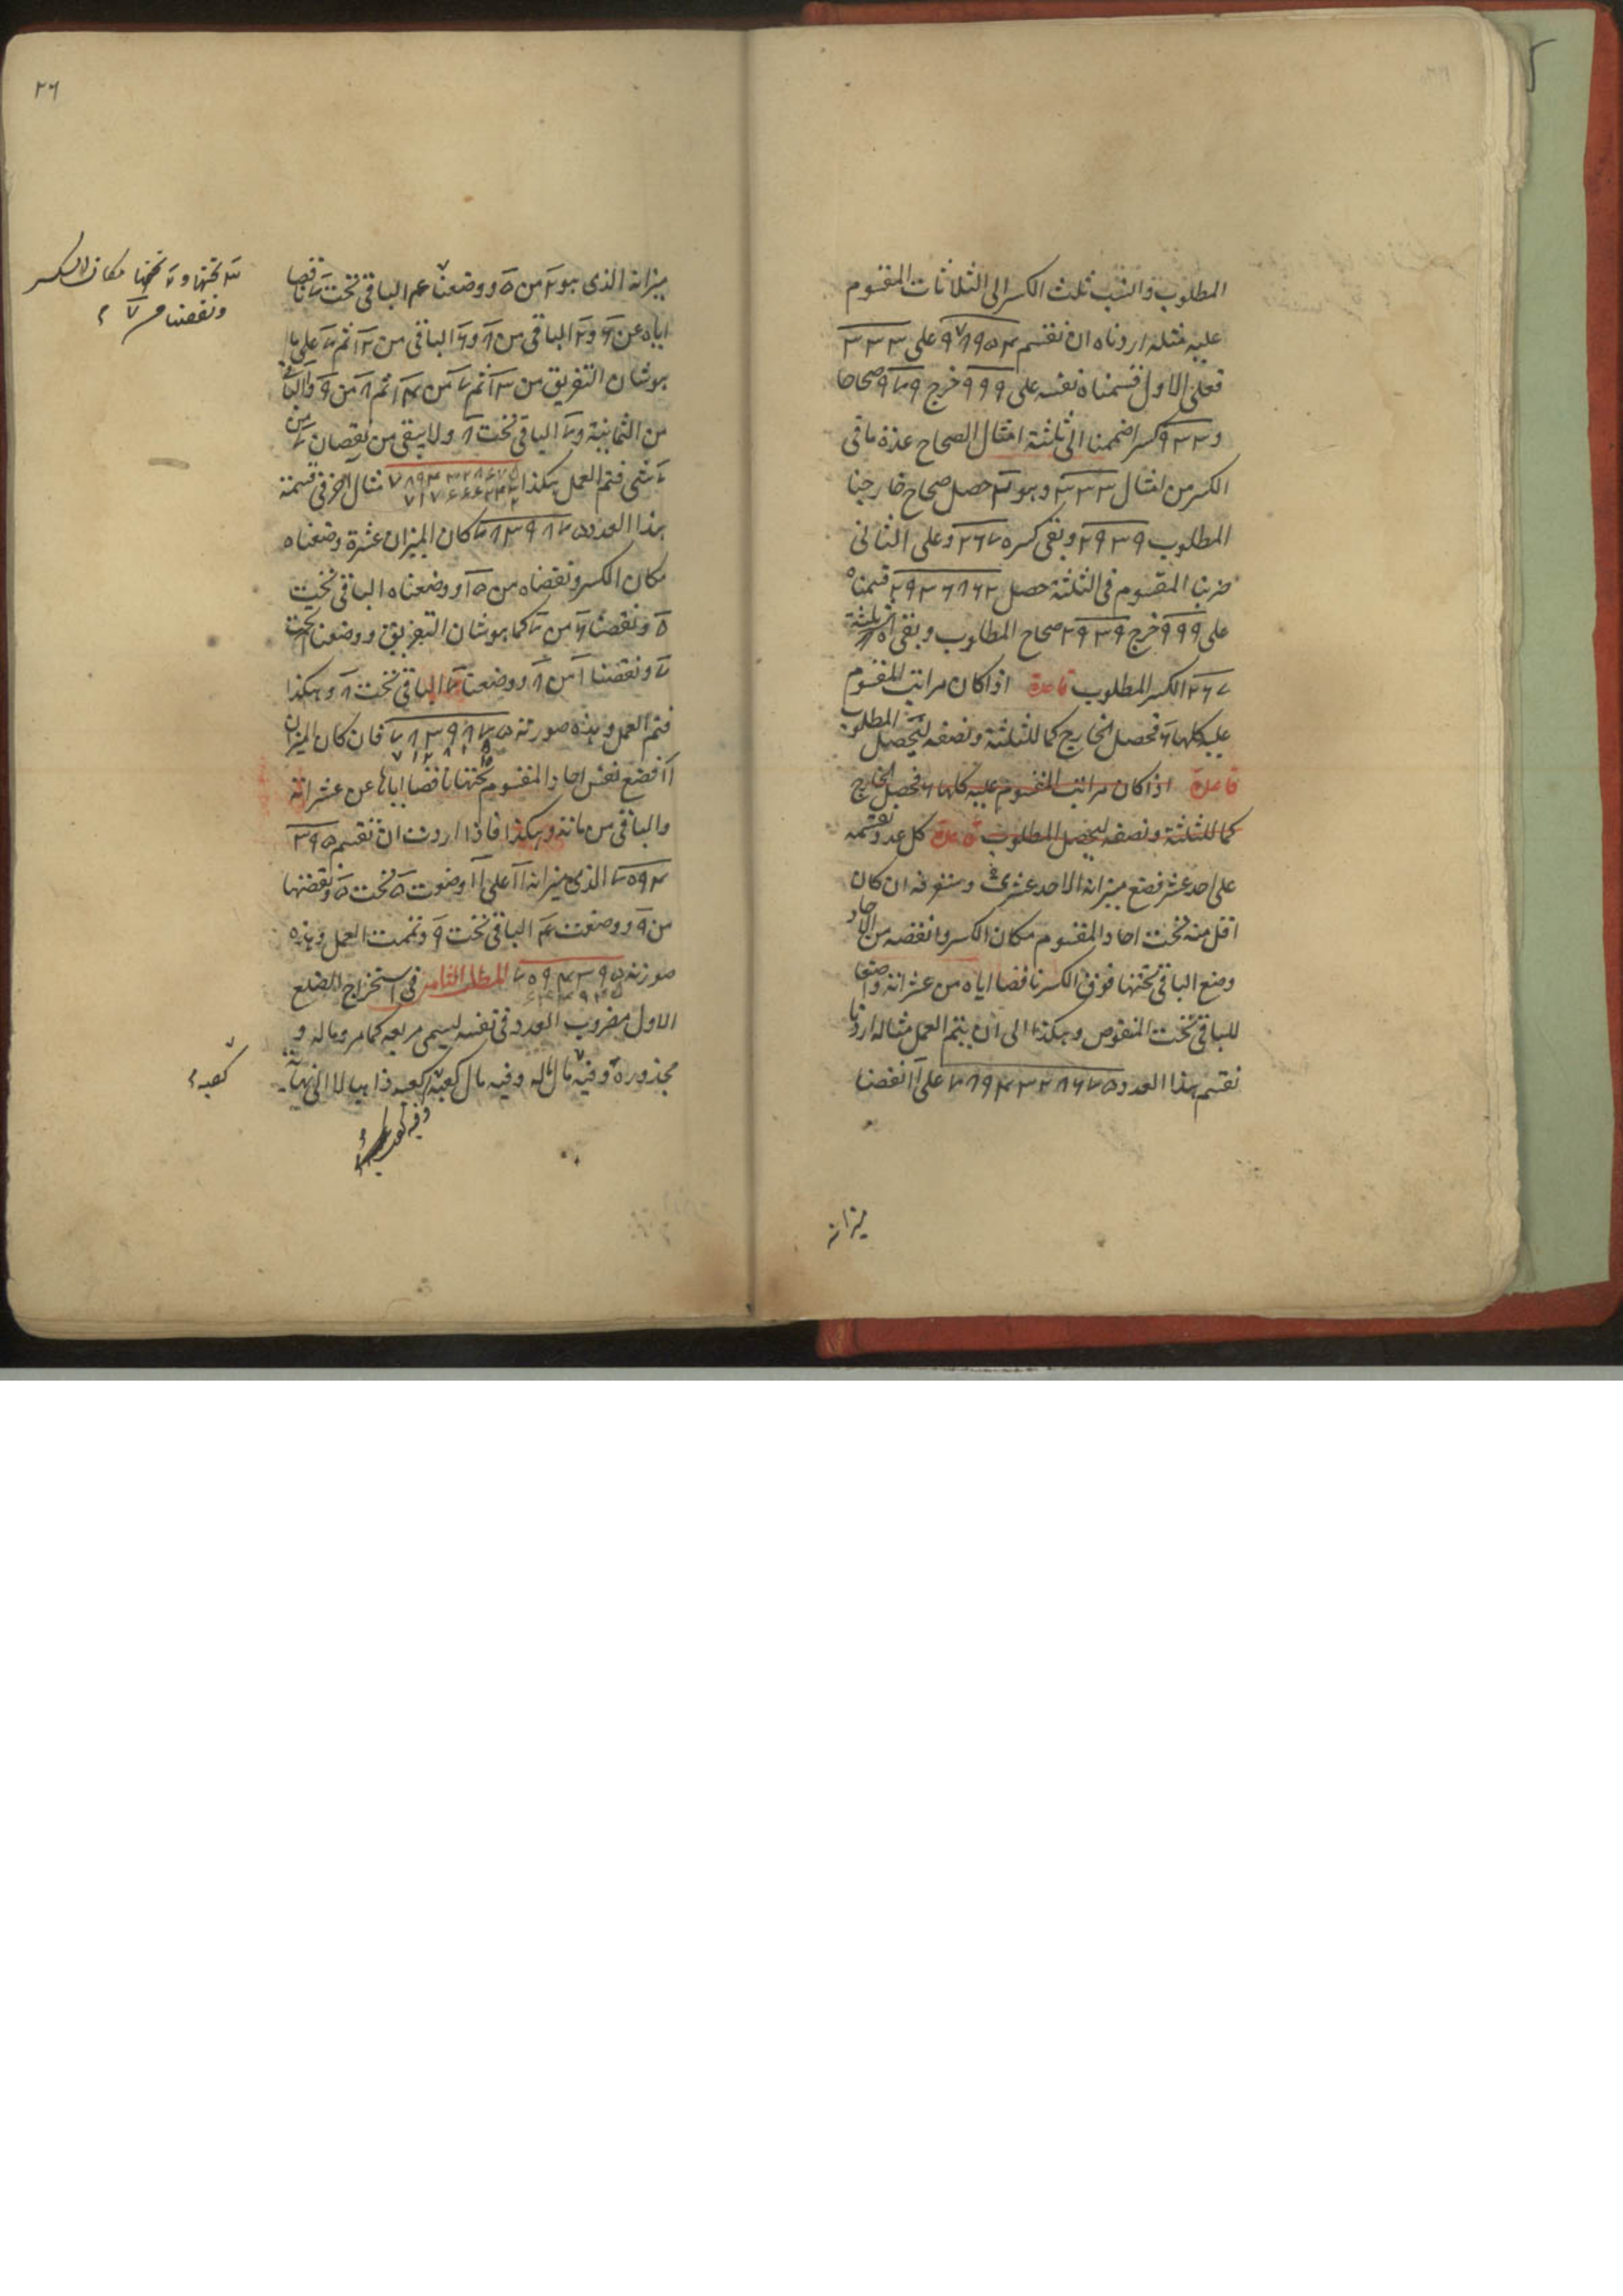 المطلوب والنسب ثلث الكسر الى الثلاثات المقسوم
عليه مثله اردناه ان نقسم ٩٧٨٩٥٤ على ٣٣٣
فعلى الاول قسمناه نفسه على ٩٩٩ خرج ٩٧٩ صحاحا
و ٩٣٣ كسرا ضممنا الى ثلثة امثال الصحاح عدة ما فى
الكسر من امثال ٣٣٣ وهو ٢ حصل صحاح خارجنا
المطلوب ٢٩٣٩ وبقى كسره ٢٦٧ وعلى الثانى
ضربنا المقسوم فى الثلثة حصل ٢٩٣٦٨٦٢ قسمناه
على ٩٩٩ خرج ٢٩٣٩ صحاح المطلوب وبقى ثلثه
٢٦٧ الكسر المطلوب قاعدة اذا كان مراتب المقسوم
عليه كلها ٦ فحصل الخارج كما للثلثة ونصفه ليحصل المطلوب
قاعدة اذا كان مراتب المقسوم عليه كلها ٦ فحصل الخارج
كما للثلثة ونصفه ليحصل المطلوب قاعدة كل عدد نقسمه
على احد عشر فضع ميزانه الاحد عشرى وستعرفه ان كان
اقل منه تحت احاد المقسوم مكان الكسر وانقصه من الاحاد
وضع الباقى تحتها فوق الكسر ناقصا اياه من عشراته واضعا
للباقى تحت المنقوص وهكذا الى ان يتم العمل مثاله اردنا
نقسم هذا العدد ٧٨٩٤٣٢٨٦٧٥ على ١١ نقصنا
ميزانه
٢٦
ميزانه الذى هو ٢ من ٥ ووضعنا ٣ الباقى تحت ٧ ناقصا
اياه عن ٦ و ٢ الباقى من ٨ و ٦ الباقى من ١٢ ثم ٧ على ما
هو شان التفريق من ١٣ ثم ٧ من ١٤ ثم ٨ من ٩ والباقى
من الثمانية و ٧ الباقى تحت ٨ ولا يبقى من نقصان ٧ من
٧ شى فتم العمل هكذا ٧٨٩٤٣٢٨٦٧٥ مثال اخر فى قسمة
هذا العدد ٧٨٣٩٨٧٥ كان الميزان عشرة وضعناه
مكان الكسر ونقصناه من ١٥ ووضعناه الباقى تحت
٥ ونقصنا ٦ من ٧ كما هو شان التفريق ووضعنا ١ تحت
٧ ونقصنا ١ من ٨ ووضعنا ٧ الباقى تحت ٨ وهكذا
فتم العمل وهذه صورته ٧٨٣٩٨٧٥ فان كان الميزان
١١ فضع نفس احاد المقسوم تحتها ناقصا اياها عن عشراته
والباقى من مائته وهكذا فاذا اردت ان نقسم ٣٩٥
٧٥٩٤ الذى ميزانه ١١ على ١١ وضعت ٥ تحت ٥ ونقصتها
من ٩ ووضعت ٤ الباقى تحت ٩ وتممت العمل وهذه
صورته ٧٥٩٤٣٩٥ المطلب الثامن فى استخراج الضلع
الاول مضروب العدد فى نفسه ليسمى مربعه كما مر وماله و
مجذوره وفيه مال ماله وفيه مال كعبه كعبه ذاهبا لا الى نهاية
تحتها و ٧ تحتها مكان الكسر
ونقصنا
كعبه